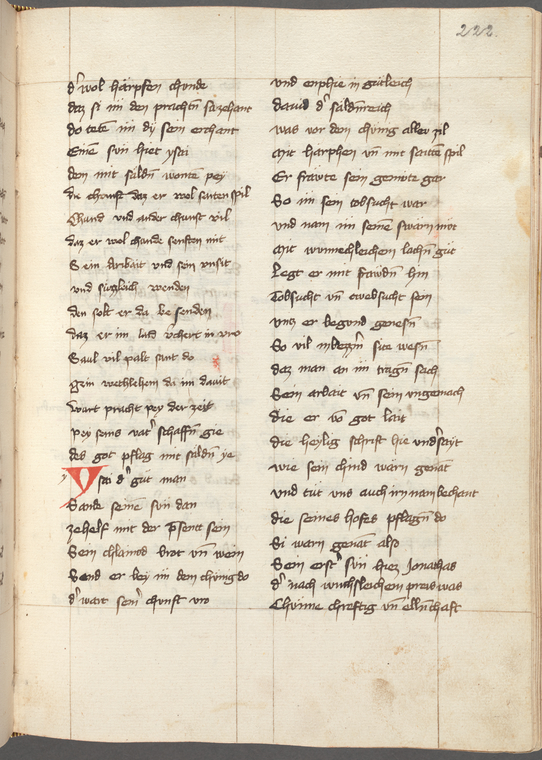 222.
d' wol harpfen chunde
daz si im den prachtn sazehant
do tete im dy sein erchant
Einē sun hiet ysai
dem mit säldn wonte pey
die chunst daz er wol saitenspil
Chund und ander chunst vil
daz er wol chunde senften mit
Sein arbait und sein unsit
und sūgleich wenden
den solt er da besenden
daz er im wurd
Saul vil palt sant do
gein wethlehem da im dauit
wart pracht pey der zeit
pey seins vat' schaffn gie
des got pflag mit säldn ye
Ysai d' gūt man
Sande seinē sun dan
zehelf mit der p̄sent sein
Sein chlains brot vn̄ wein
Send er bey im dem chūnig do
d' wart sein' chunft vro
und enphie in gūtleich
dauid d' säldnreich
was vor dem chūnig aller zil
Mit harphen vn̄ mit saitenspil
Er frawte sein gemūte gar
So im sein tobsucht war
und nam im seinē swarn mūt
Mit wunnechleichem lachn̄ gūt
legt er mit frawdn̄ hin
Tobsucht vn̄ sein
untz er begund genesn̄
So vil site wesn̄
daz man an im sach
Sein arbait vn̄ sein ungemach
die er vō got lait
die heylig schrift hie und' sait
wie sein chind warn genāt
und tūt uns auch irn nam bechant
die seines hofes pflagn̄ do
Si warn genāt also
Sein erst' sun hiez Jonathas
d' nach wunschleichem preis was
Chūnne chreftig vn̄ ellnthaft